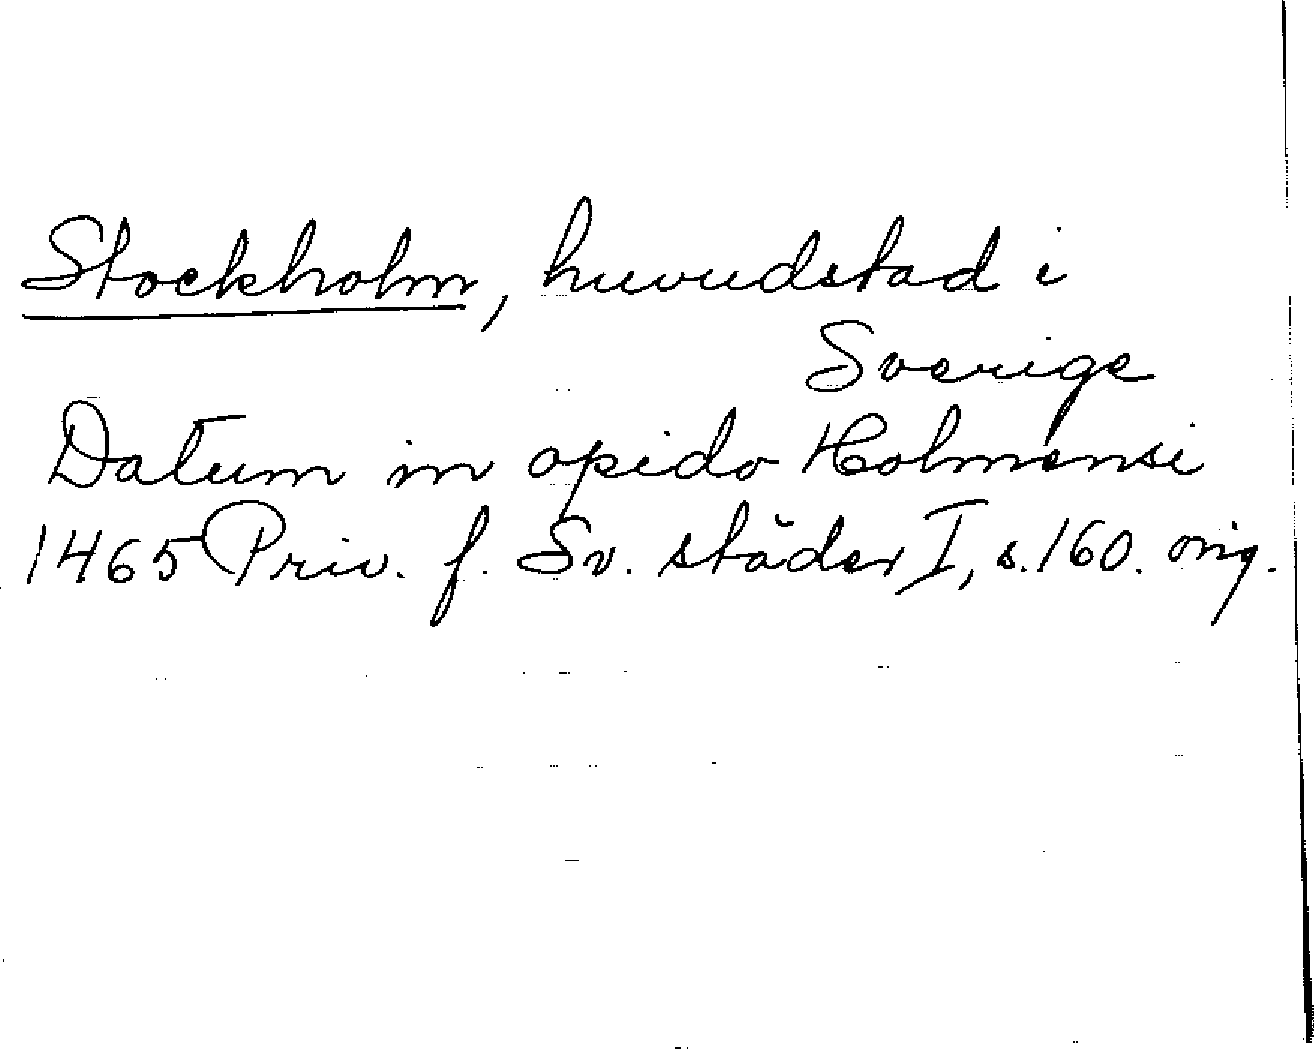 Stockholm, huvudstad i
Sverige
Datum in opido Holmensi
1465 Priv. f. Sv. städer I, s. 160. orig.